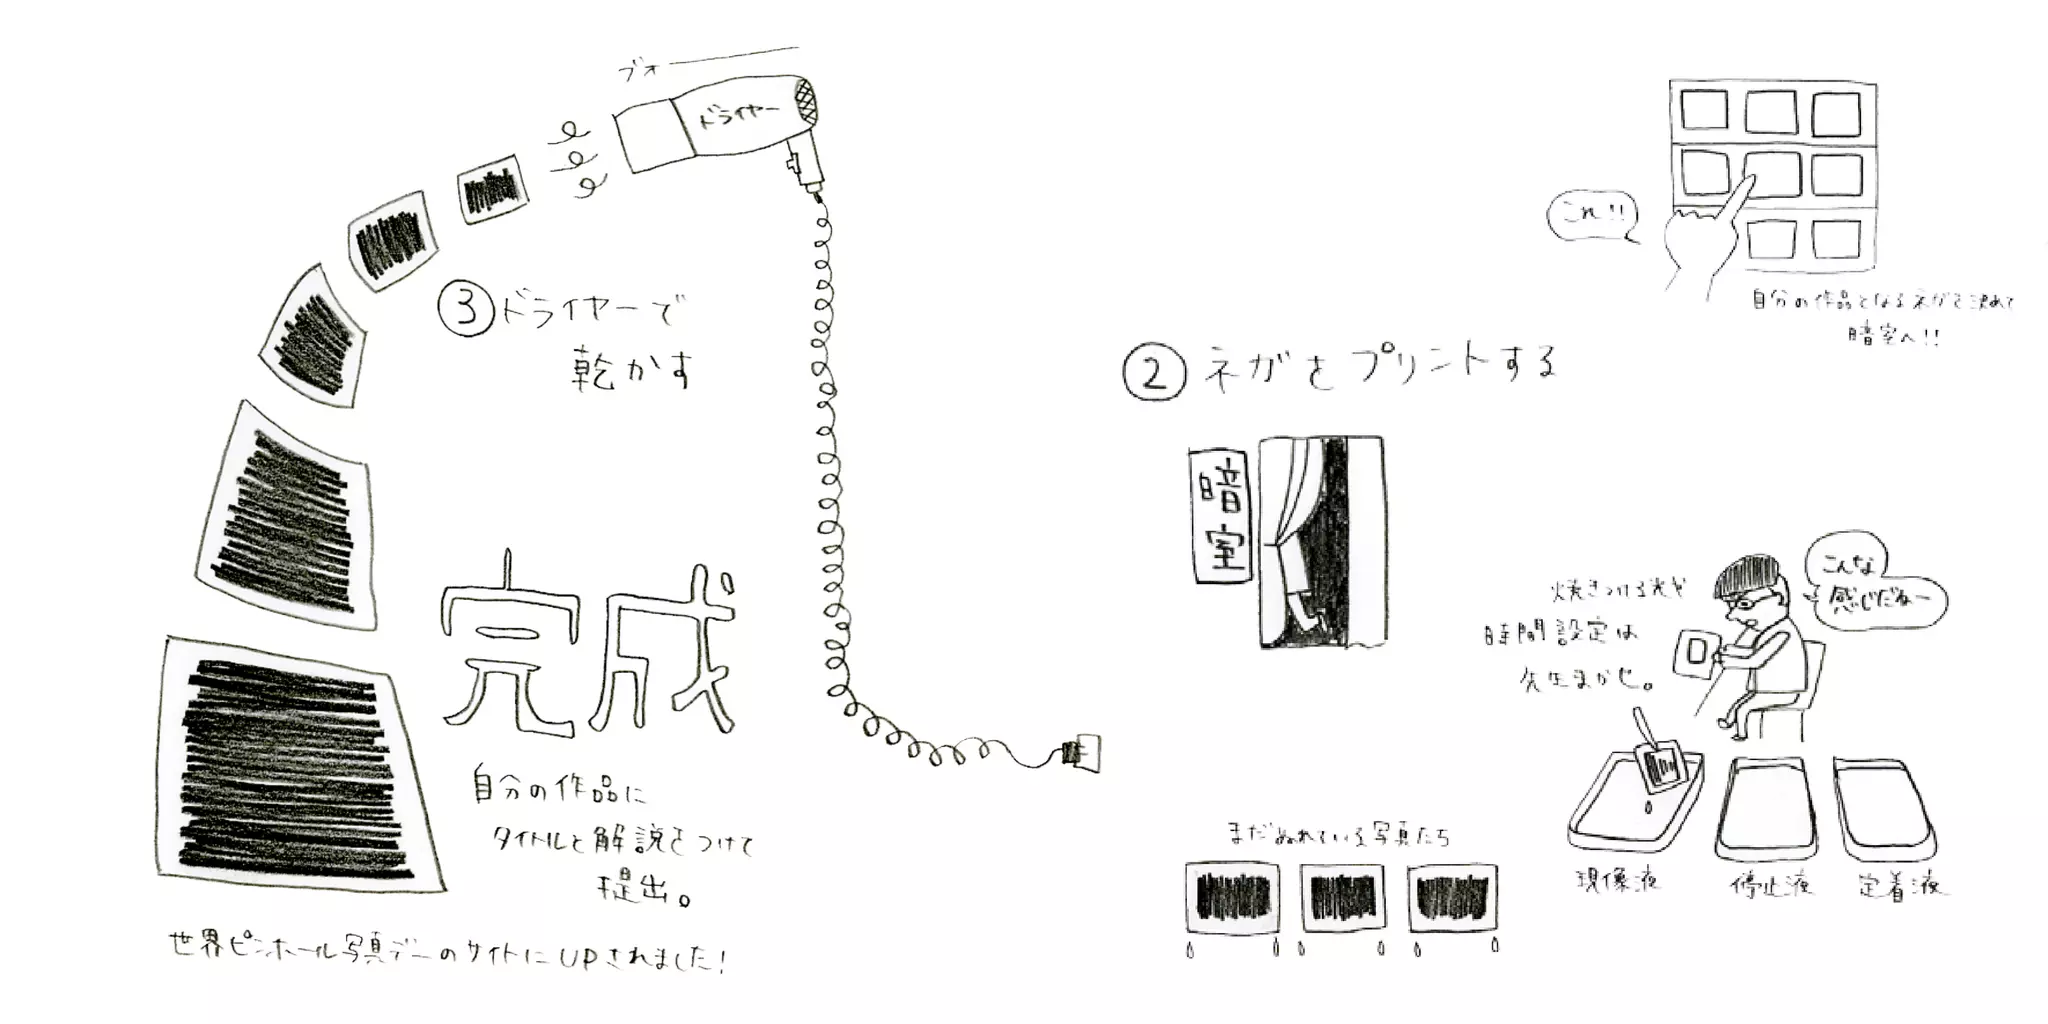 これ!!
自分の作品となるネガを決めて
暗室へ!!
② ネガをプリントする
暗室
こんな
感じだねー
焼きつける光や
時間設定は
先生まかせ。
現像液
停止液
定着液
まだぬれている写真たち
ブオー
ドライヤー
③ ドライヤーで
乾かす
完成
自分の作品に
タイトルと解説をつけて
提出。
世界ピンホール写真デーのサイトにUPされました!